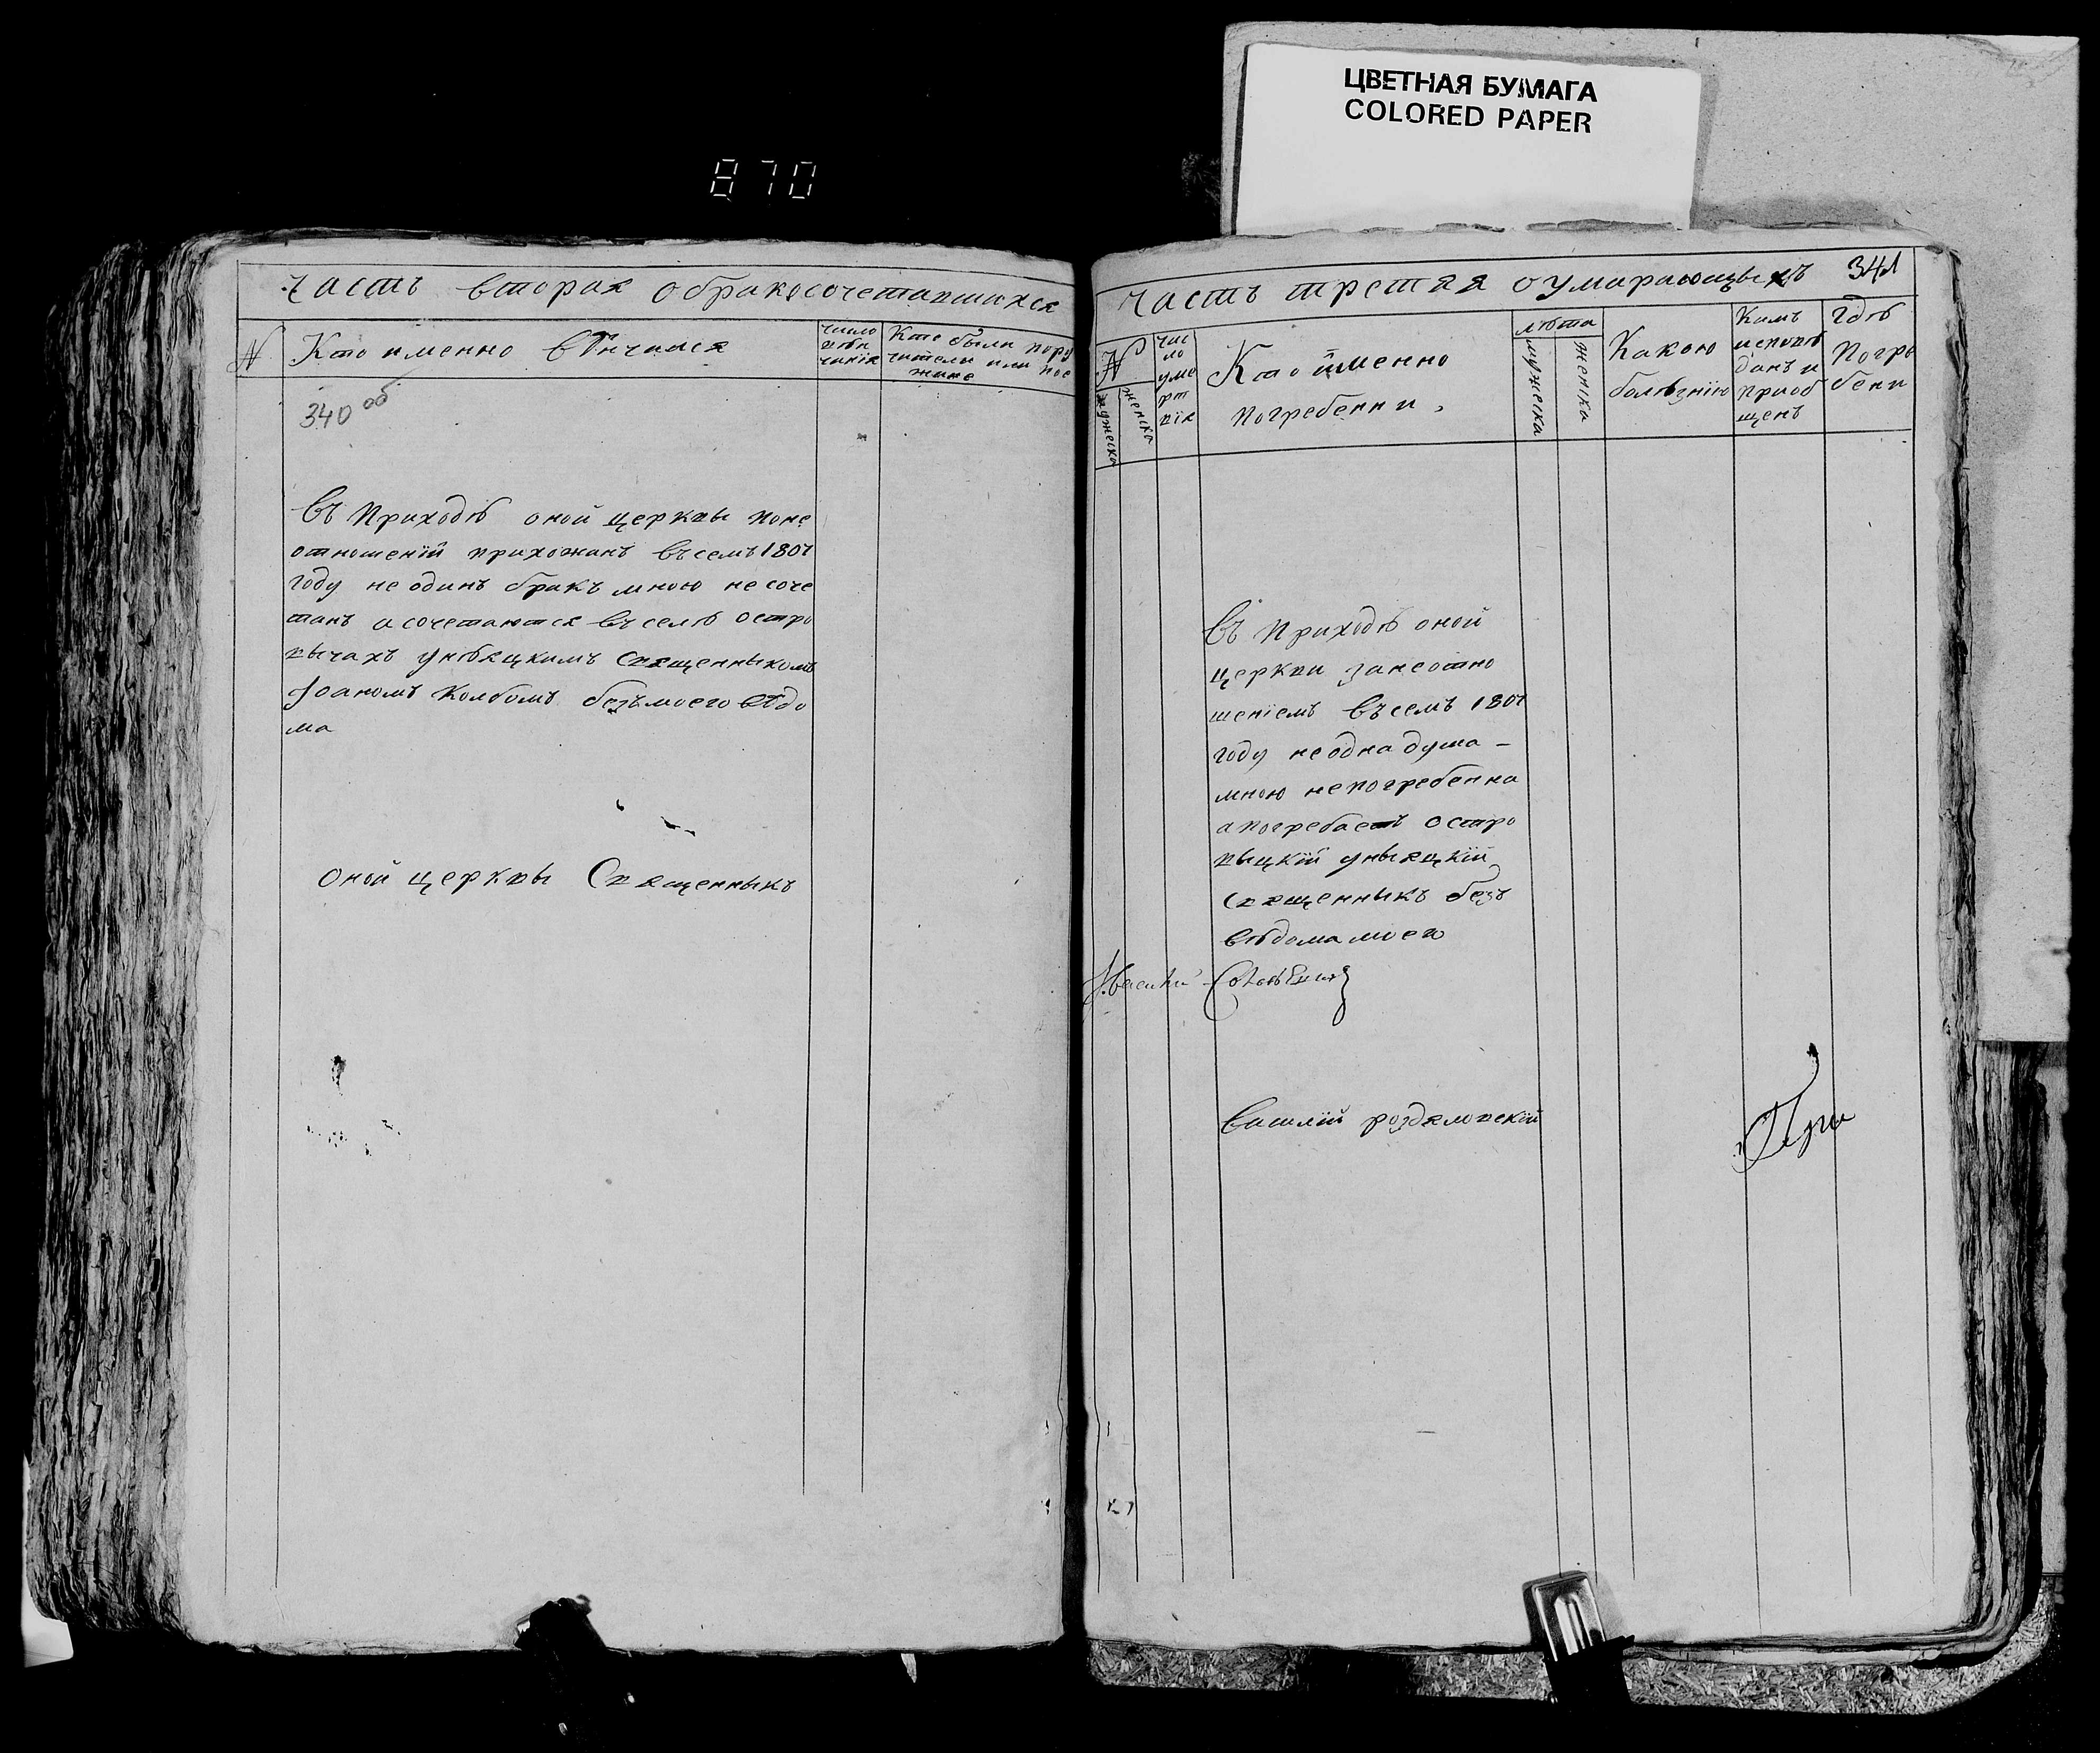 ЦВЕТНАЯ БУМАГА
COLORED PAPER
870
Часть вторая обракосочетавшихся
N
Кто именно вѣнчался
число
вѣн
чанія
Кто были пору
чители или пое
жане
340 об
Въ Приходѣ оной церквы поне
отношеній прихожанъ Въсемъ 1801
году не одинъ бракъ мною не соче
танъ а сочетаются Въ селѣ остро
вычахъ унѣяцкимъ Священныкомъ
Іоаномъ Колбомъ безъ моего вѣдо
ма
Оной церквы Священныкъ
Часть третяя оумирающыхъ
341
N
мужеска
женска
чис
ло
уме
рт
вія
Кто именно
погребенни.
лѣта
мужеска
женска
Какою
болѣзнію
Кимъ
исповѣ
данъ и
приоб
щенъ
Гдѣ
Погре
бени
Въ Приходѣ оной
церкви занеотно
шеніемъ Въсемъ 1801
году не одна душа -
мною непогребенна
а погребаетъ остро
выцкій уныяцкій
Священныкъ безъ
вѣдома моего
Василій роздяловскій